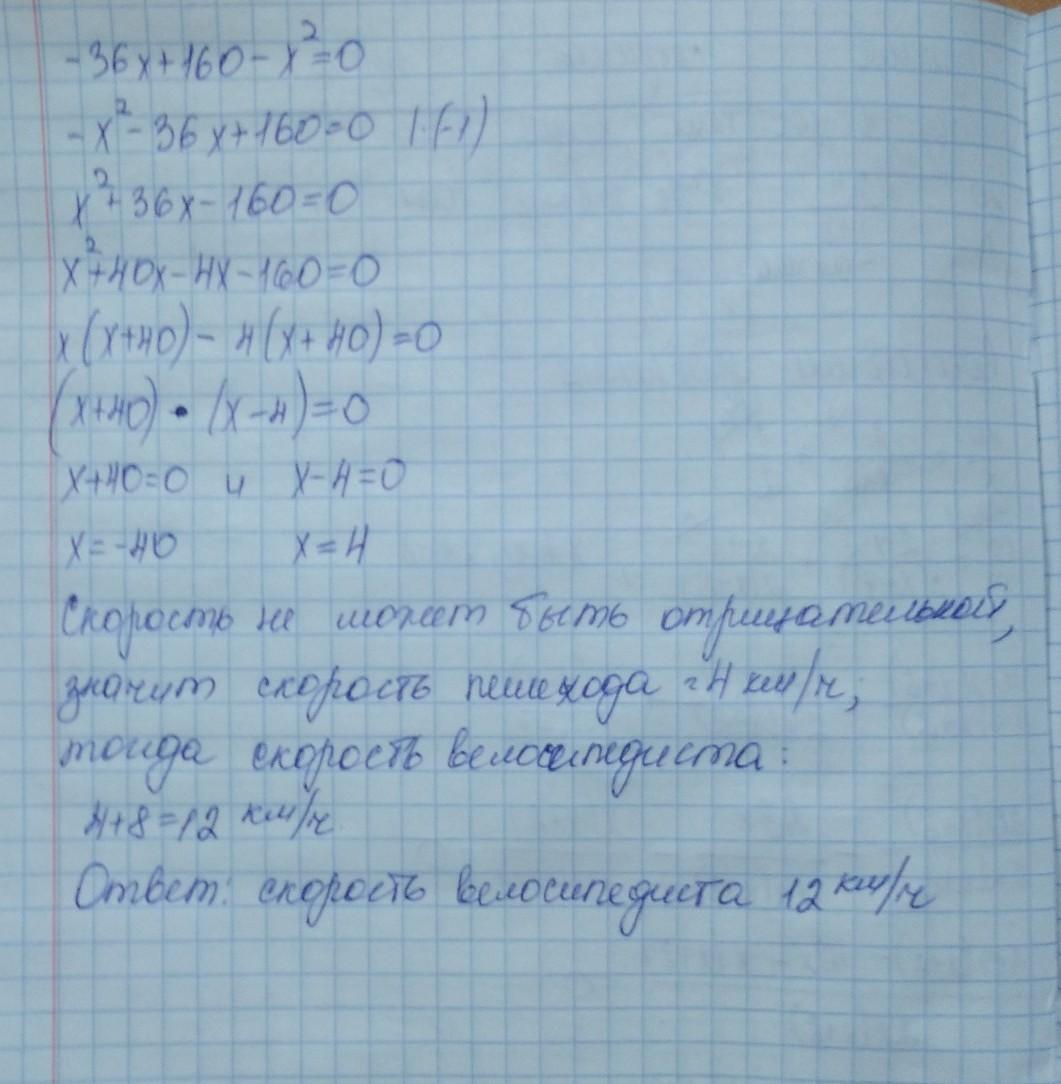 -36x+160-x²=0
-x²-36x+160=0 |·(-1)
x²+36x-160=0
x²+40x-4x-160=0
x(x+40)-4(x+40)=0
(x+40)·(x-4)=0
x+40=0 и x-4=0
x=-40 x=4
Скорость не может быть отрицательной,
значит скорость пешехода =4 км/ч,
тогда скорость велосипедиста:
4+8=12 км/ч
Ответ: скорость велосипедиста 12 км/ч